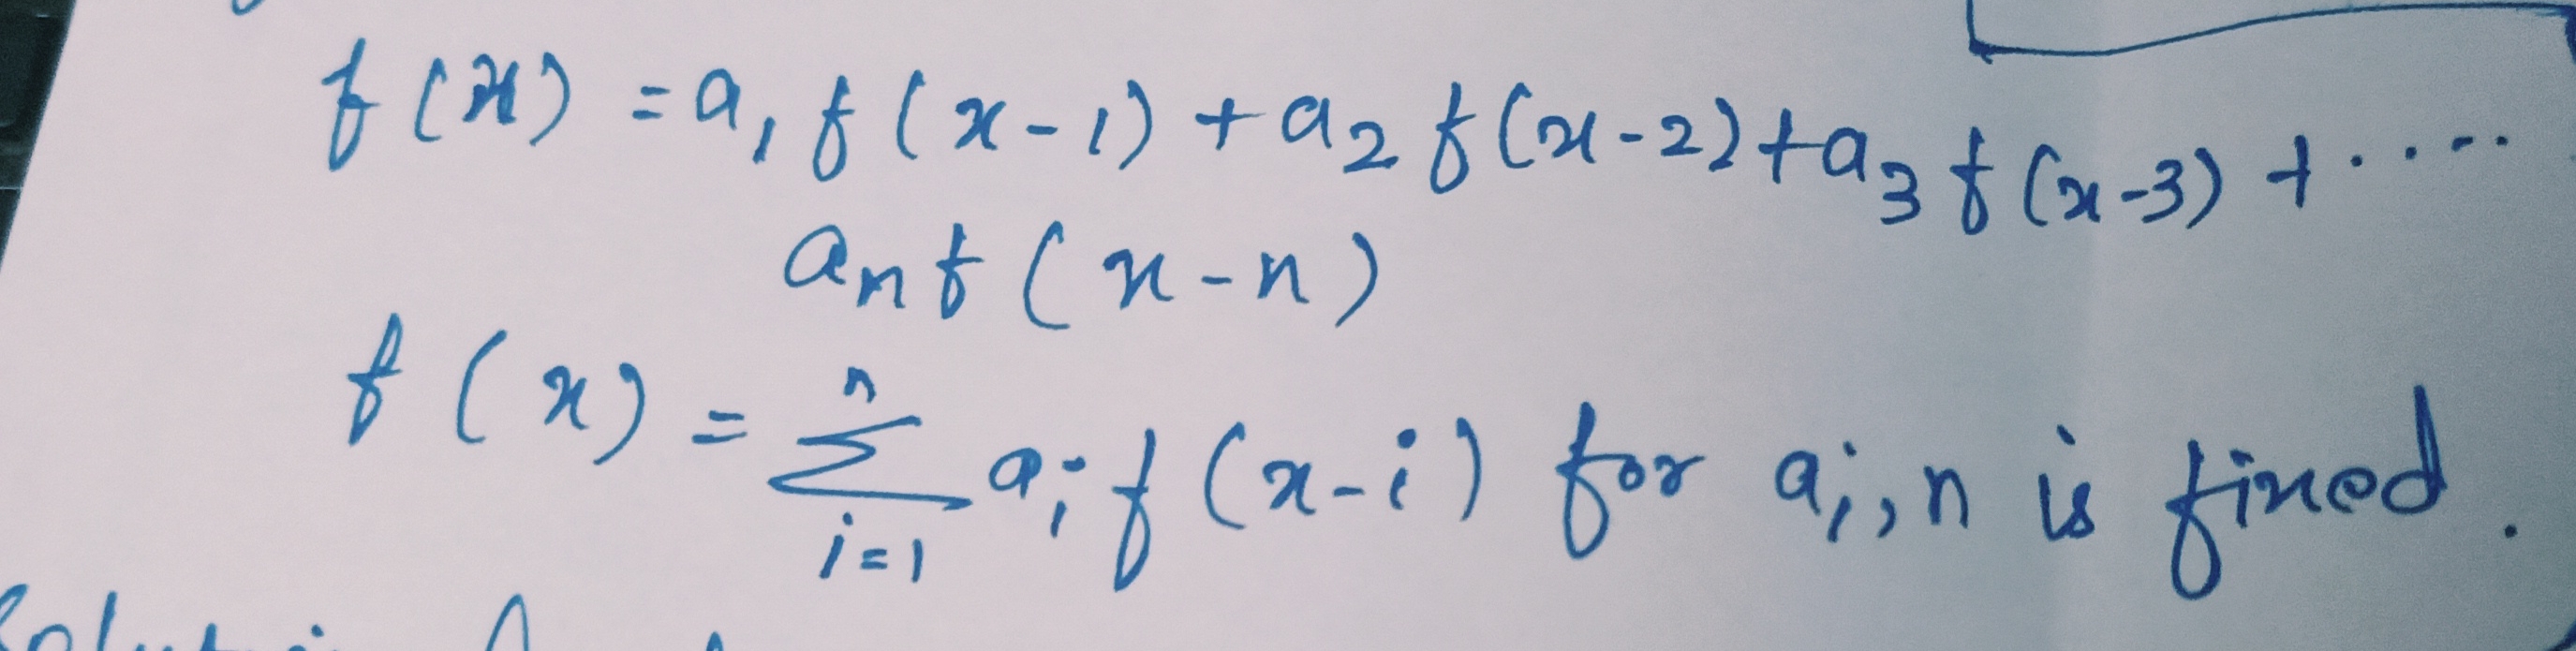 f(x) = a₁ f(x-1) + a₂ f(x-2) + a₃ f(x-3) + ....
aₙ f(x-n)
f(x) = ∑ⁿᵢ₌₁ aᵢ f(x-i) for aᵢ, n is fixed.